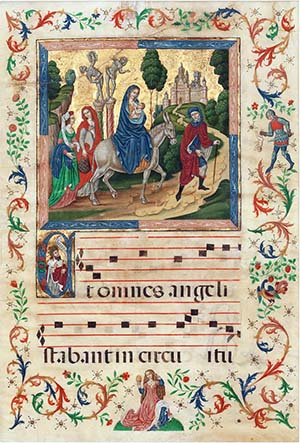 Et omnes angeli
stabant in circu itu